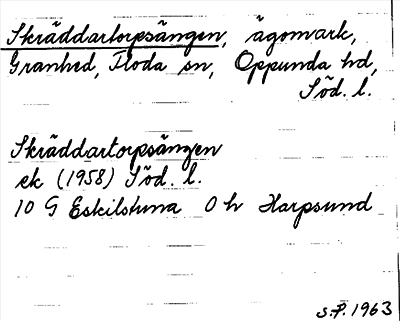 Skräddartorpsängen, ägomark,
Granhed, Floda sn, Oppunda hd,
Söd. l.
Skräddartorpsängen
ek (1958) Söd. l.
10 G Eskilstuna 0 h Harpsund
S.P. 1963